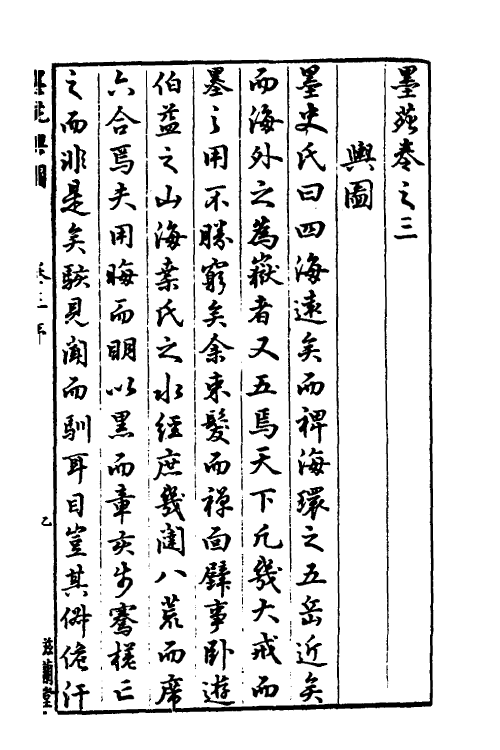 墨苑卷之三
輿圖
墨史氏曰四海遠矣而裨海環之五岳近矣
而海外之為嶽者又五焉天下凡幾大戒而
墨之用不勝窮矣余束髮而禪面壁事卧遊
伯益之山海桒氏之水經庶幾闔八荒而席
六合焉夫用晦而明以黒而章亥步騫槎亡
之而非是矣駭見聞而馴耳目豈其侈汗
卷三序
乙
滋蘭堂